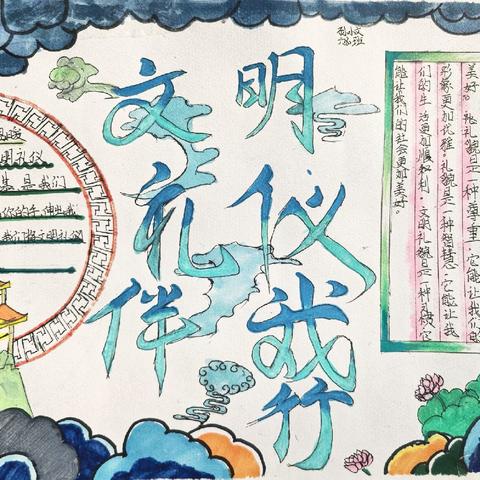 文明
礼仪
伴我行
明礼仪
你的手伸出我
我们将文明礼仪
美好。礼貌是一种尊重，它能让我们的
形象更加优雅。礼貌是一种智慧，它能让我
们的生活更加顺利。文明礼貌是一种 它
能让我们的社会更加美好。